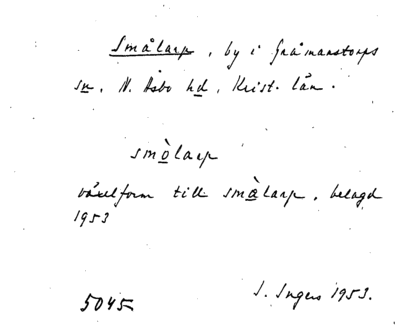 Smålarp, by i Gråmanstorps
sn, N. Åsbo hd, Krist. län.
smòlarp
växelform till smàlarp, belagd
1953
I. Ingers 1953.
5045